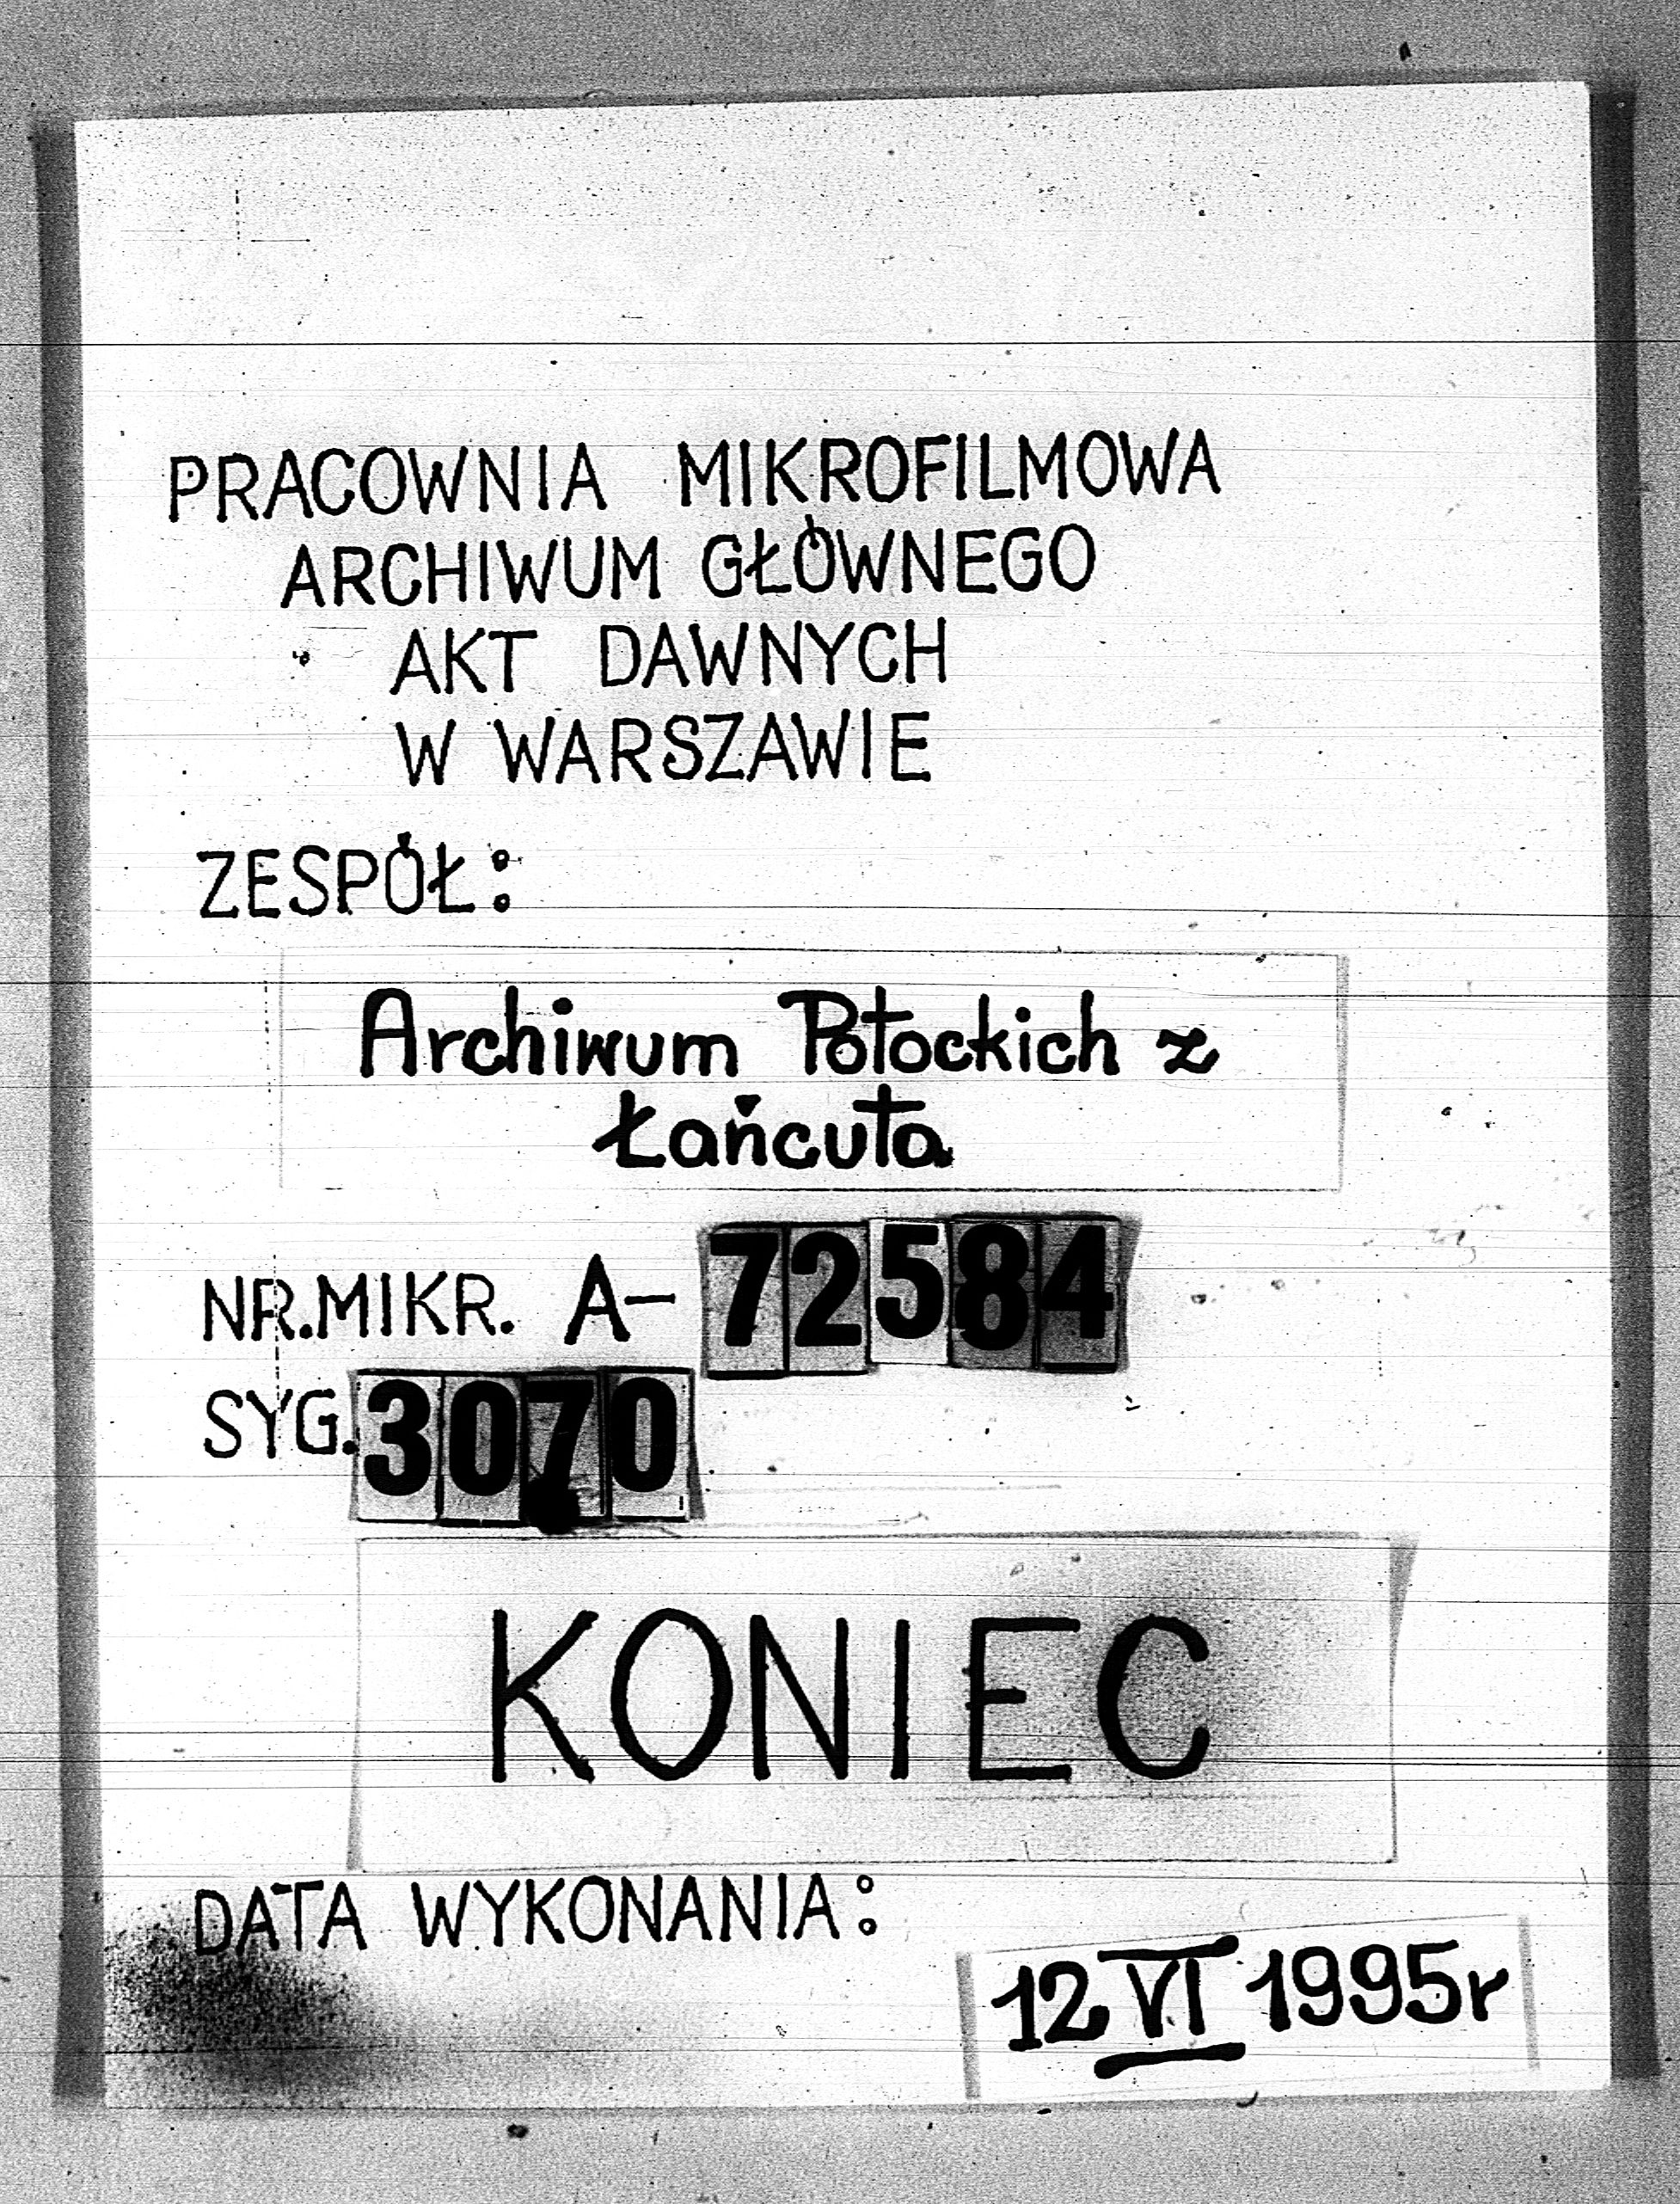 PRACOWNIA MIKROFILMOWA
ARCHIWUM GŁÓWNEGO
AKT DAWNYCH
W WARSZAWIE
ZESPÓŁ:
Archiwum Potockich z
Łańcuta
NR.MIKR. A- 72584
SYG. 3070
KONIEC
DATA WYKONANIA:
12 VI 1995r